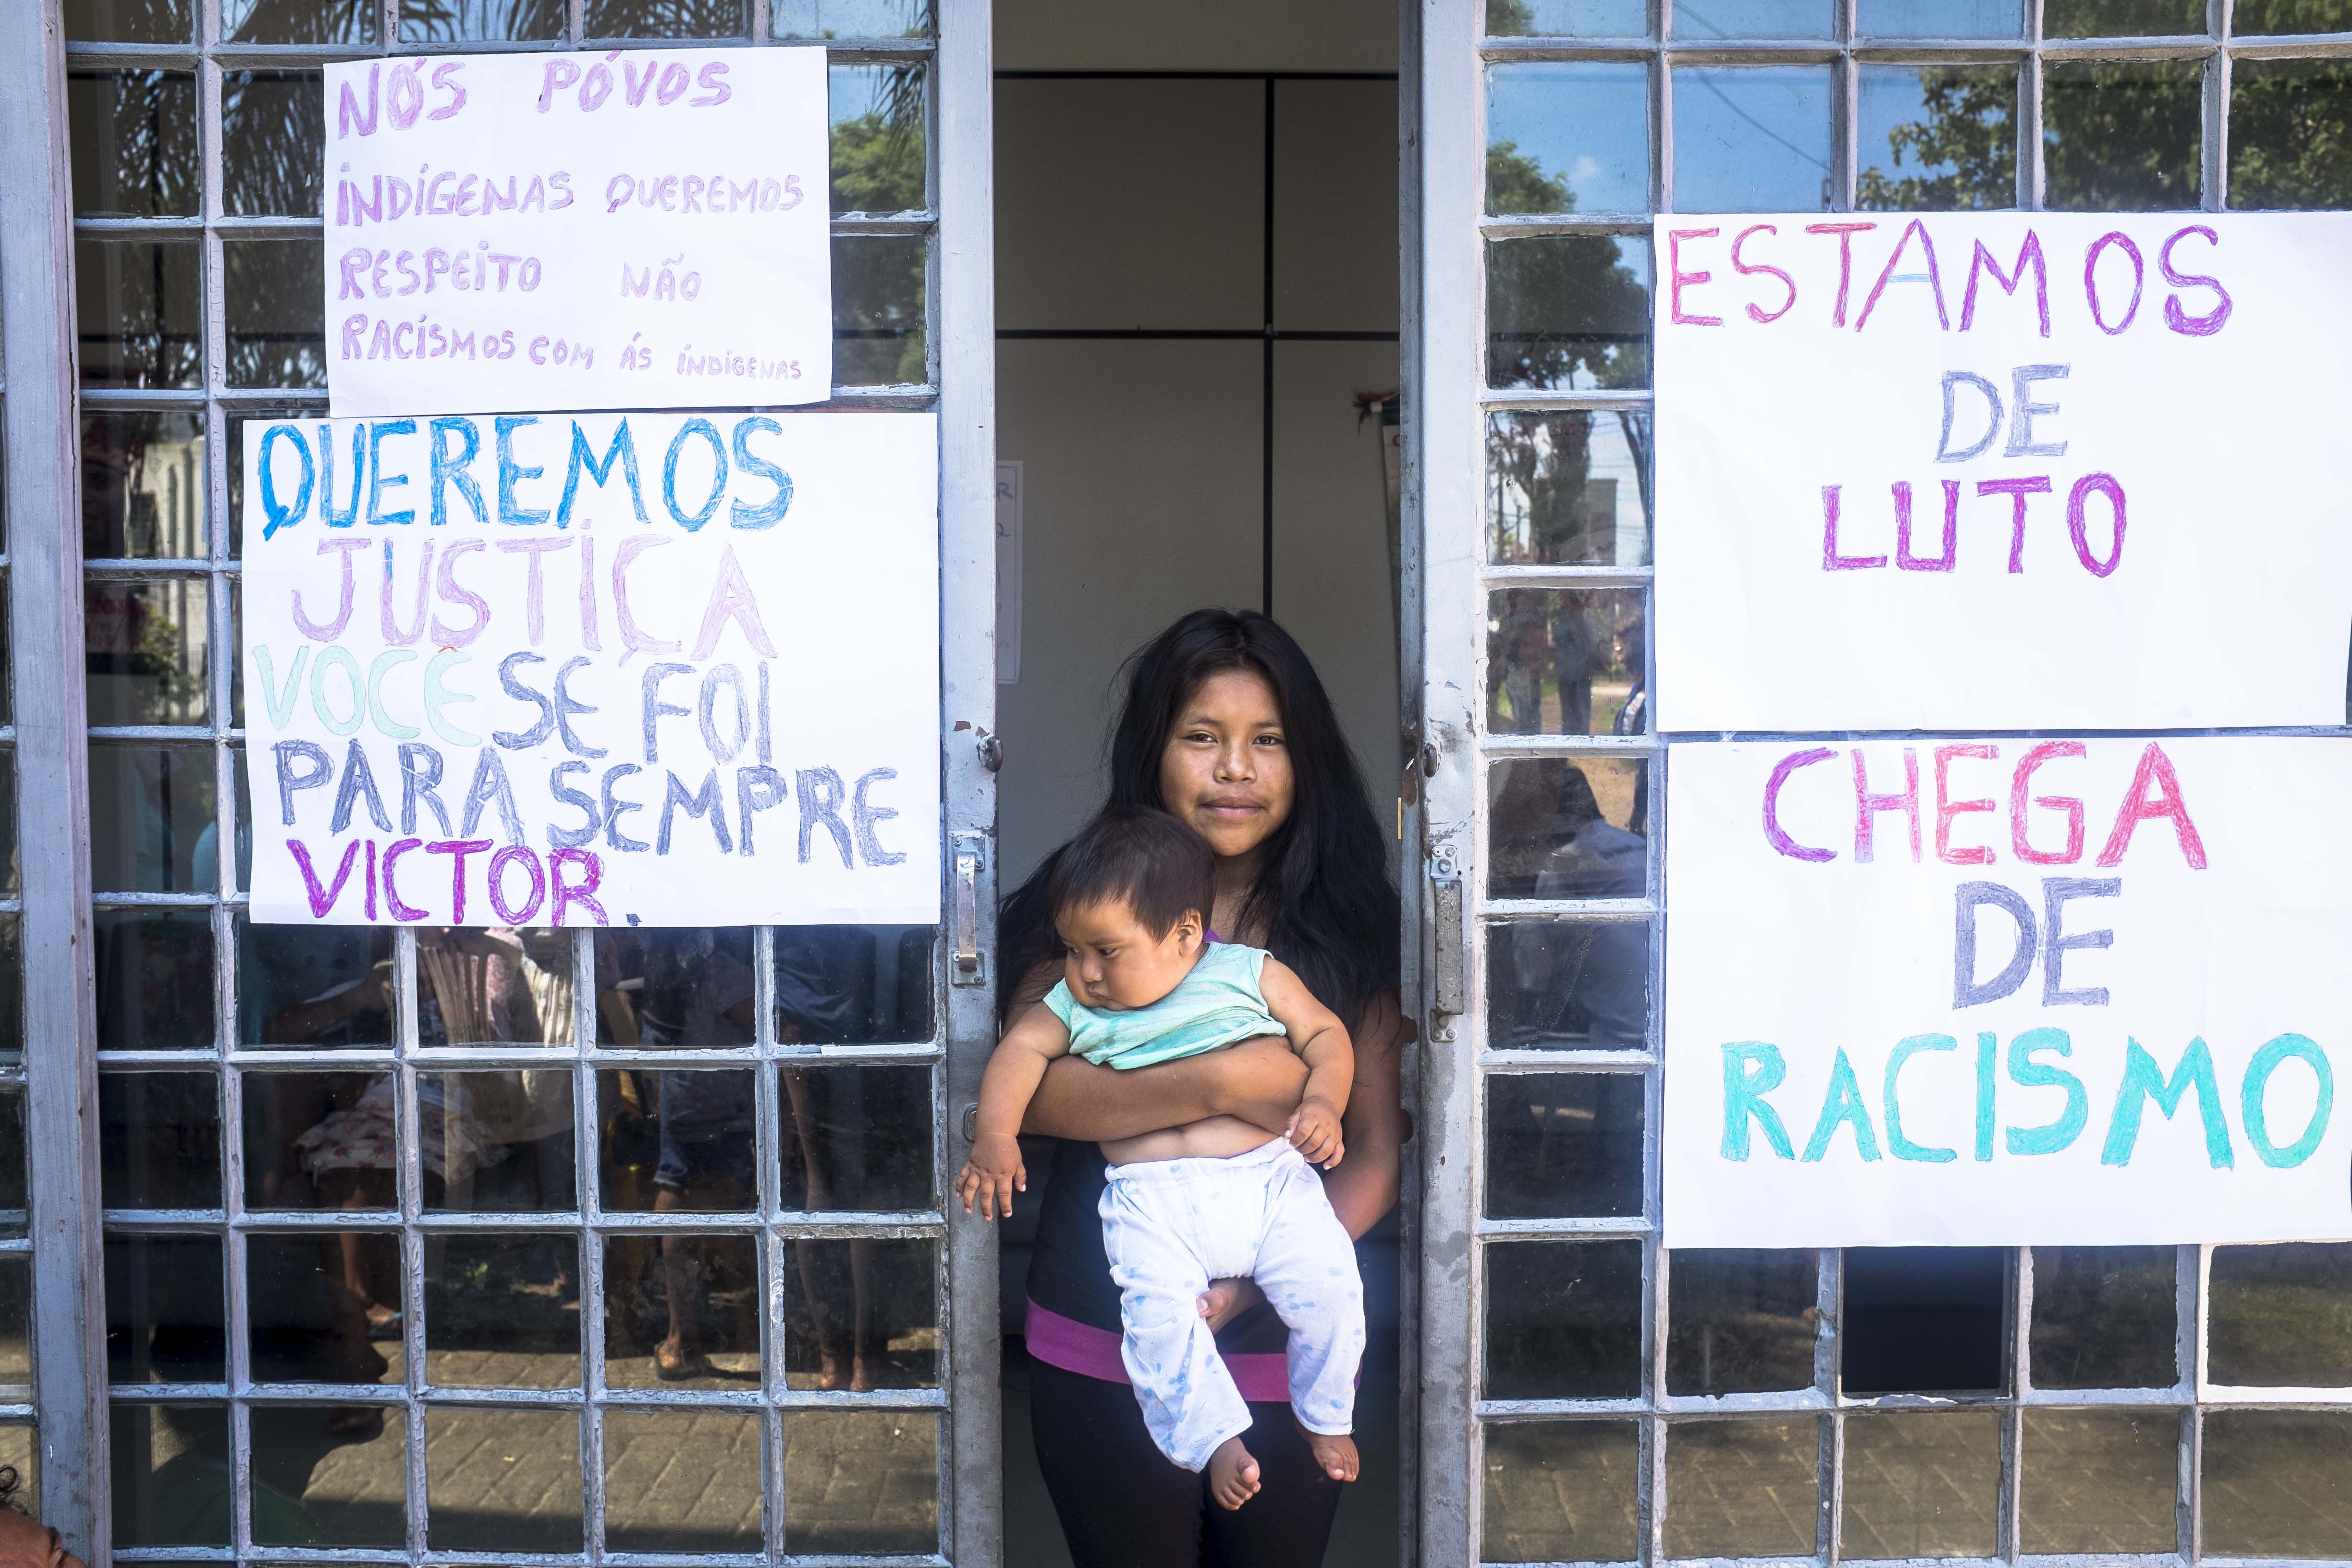 NÓS PÓVOS
INDÍGENAS QUEREMOS
RESPEITO NÃO
RACÍSMOS COM ÁS ÍNDIGENAS
QUEREMOS
JUSTIÇA
VOCÊ SE FOI
PARA SEMPRE
VICTOR.
ESTAMOS
DE
LUTO
CHEGA
DE
RACISMO